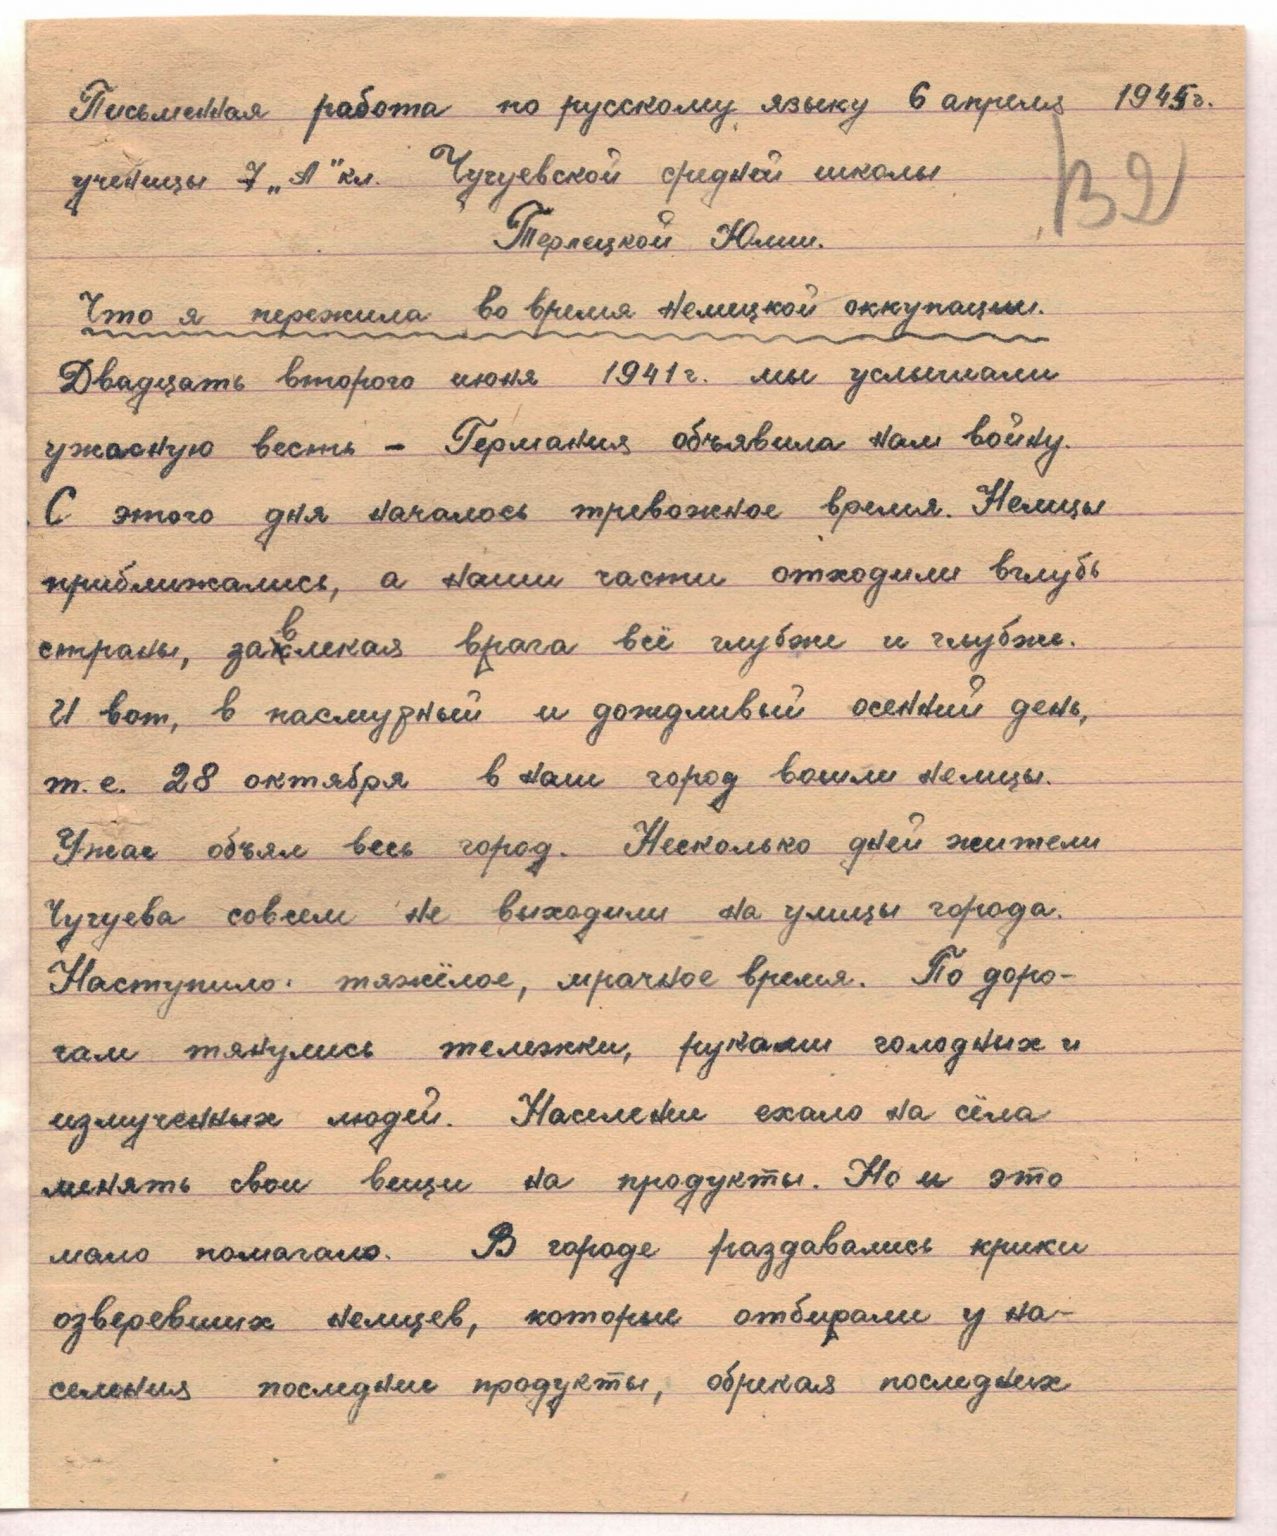 Письменная работа по русскому языку 6 апреля 1945г.
ученицы 7 „А" кл. Чугуевской средней школы
132
Терлецкой Юлии.
Что я пережила во время немецкой оккупации.
Двадцать второго июня 1941г. мы услышали
ужасную весть – Германия объявила нам войну.
С этого дня началось тревожное время. Немцы
приближались, а наши части отходили вглубь
страны, завлекая врага всё глубже и глубже.
И вот, в пасмурный и дождливый осенний день,
т.е. 28 октября в наш город вошли немцы.
Ужас объял весь город. Несколько дней жители
Чугуева совсем не выходили на улицы города.
Наступило тяжёлое, мрачное время. По доро-
гам тянулись тележки, руками голодных и
измученных людей. Население ехало на сёла
менять свои вещи на продукты. Но и это
мало помагало. В городе раздавались крики
озверевших немцев, которые отбирали у на-
селения последние продукты, обрекая последних